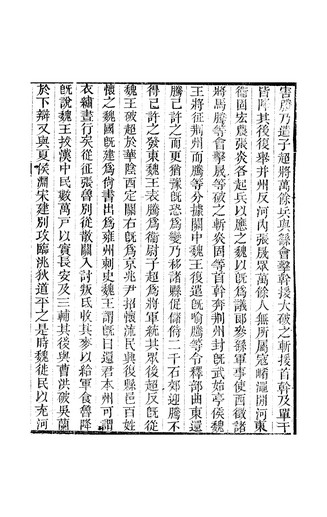 害騰乃遣子超將萬餘兵與繇會擊斬援大破之斬援首幹及單于
皆降其後復舉并州反河內張晟眾萬餘人無所屬寇崤澠閒河東
衞固宏農張炎各起兵以應之魏以旣爲議郎參繇軍事使西徵諸
將馬騰等會擊晟等破之斬炎固等首幹奔荆州封旣武始亭侯魏
王將征荆州而騰等分據關中魏王復遣旣喻騰等令釋部曲東還
騰已許之而更猶豫旣恐爲變乃移諸縣促儲偫二千石郊迎騰不
得已許之發東魏王表騰爲衞尉子超爲將軍統其眾後超反旣從
魏王破超於華陰西定關右旣爲京兆尹招懷流民興復縣邑百姓
懷之魏國旣建爲尙書出爲雍州刺史魏王謂旣曰還君本州可謂
衣繡晝行矣從征張魯別從散關入討叛氐收其麥以給軍食魯降
旣說魏王拔漢中民數萬戶以實長安及三輔其後與曹洪破吳蘭
於下辯又與夏侯淵宋建別攻臨洮狄道平之是時魏徙民以充河